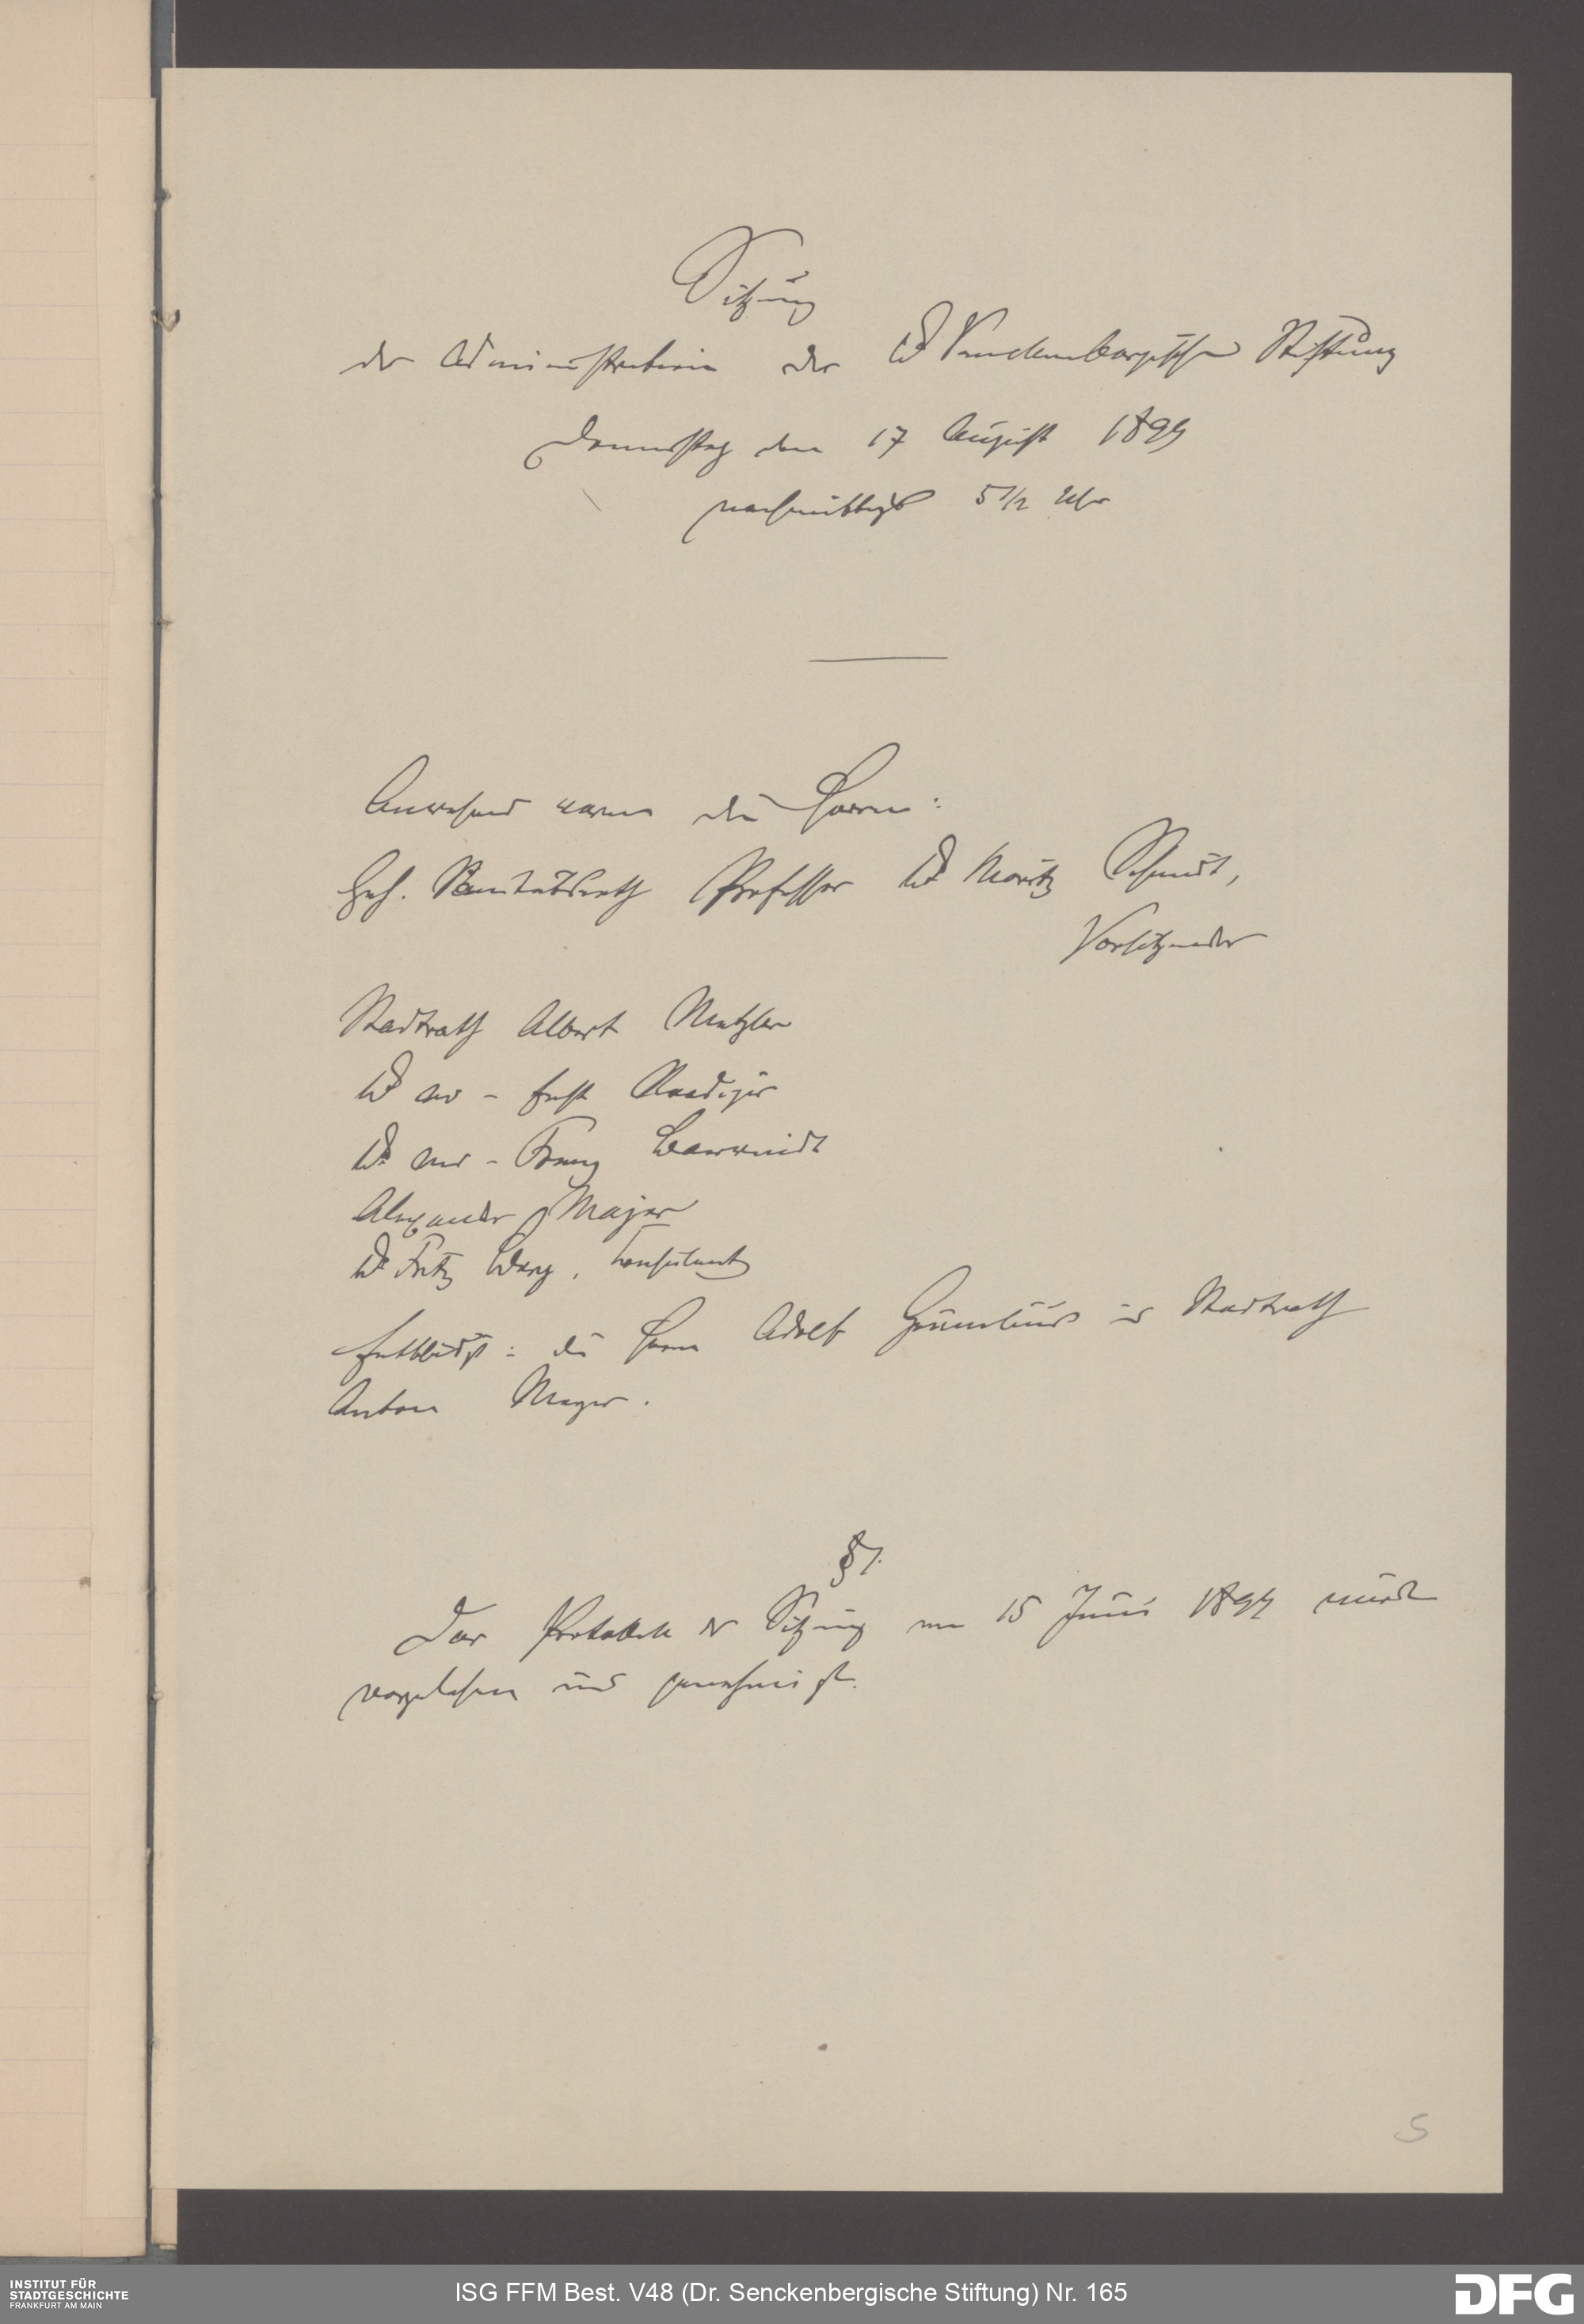 Sitzung
der Administration der Dr Senckenbergischen Stiftung
Donnerstag den 17 August 1899
nachmittags 5 1/2 Uhr
Anwesend waren die Herren:
Geh. Sanitätsrath Professor Dr Moritz Schmidt,
Vorsitzender
Stadtrath Albert Metzler
Dr med - Ernst Roediger
Dr med - Franz Bärwindt
Alexander Majer
Dr Fritz Berg, Konsulent
Entschuldigt: die Herren Adolf Grunelius und Stadtrath
Anton Meyer.
§ 1.
Das Protokoll der Sitzung vom 15 Juni 1899 wurde
vorgelesen und genehmigt.
5
INSTITUT FÜR
STADTGESCHICHTE
FRANKFURT AM MAIN
ISG FFM Best. V48 (Dr. Senckenbergische Stiftung) Nr. 165
DFG